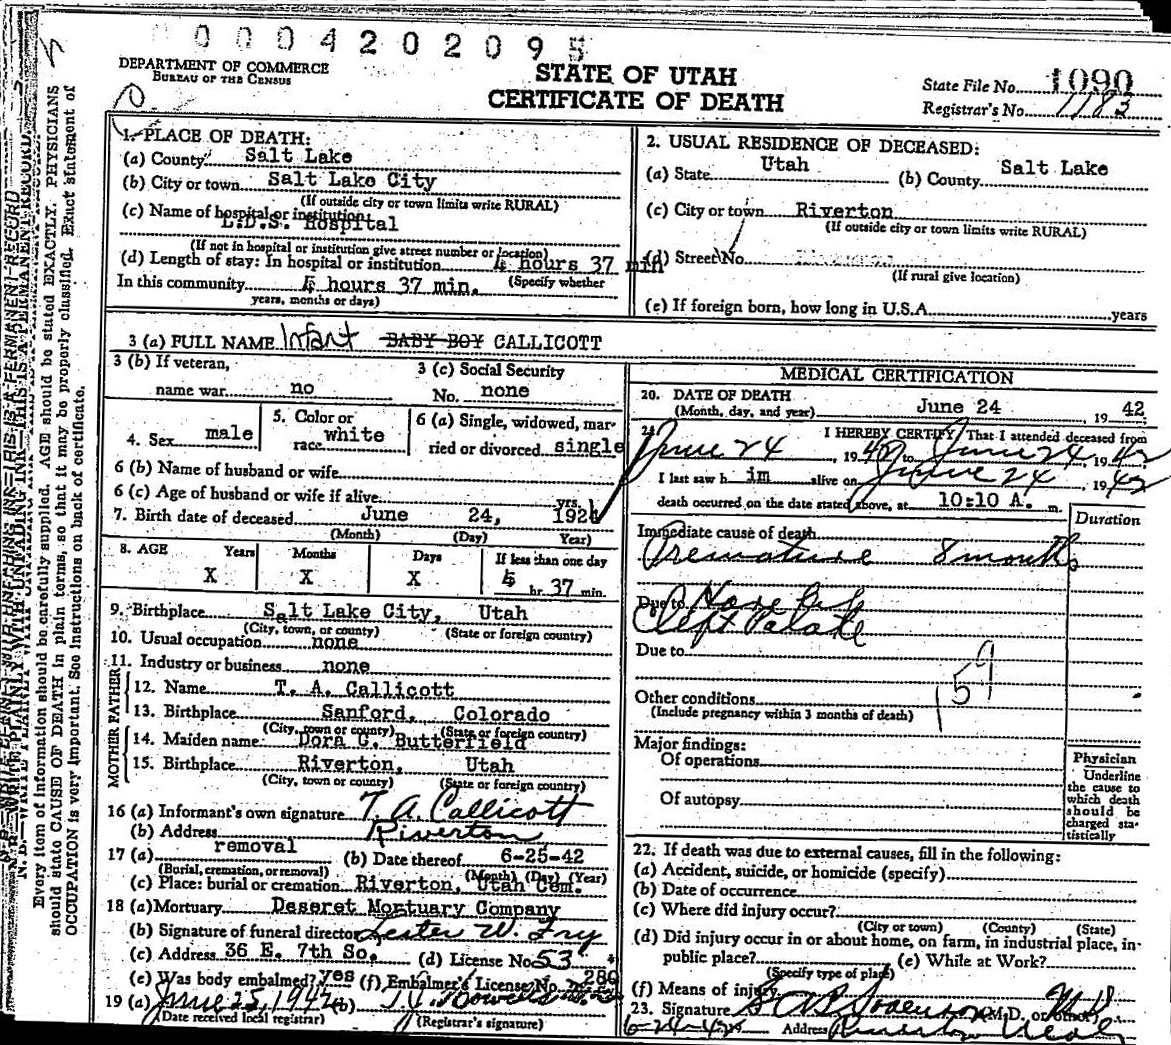 0004202095
DEPARTMENT OF COMMERCE
BUREAU OF THE CENSUS
STATE OF UTAH
CERTIFICATE OF DEATH
State File No. 1090
Registrar's No. 1183
1. PLACE OF DEATH:
(a) County Salt Lake
(b) City or town Salt Lake City
(If outside city or town limits write RURAL)
(c) Name of hospital or institution
L.D.S. Hospital
(If not in hospital or institution give street number or location)
(d) Length of stay: In hospital or institution 4 hours 37 min
(Specify whether
In this community 4 hours 37 min.
years, months or days)
2. USUAL RESIDENCE OF DECEASED:
(a) State Utah (b) County Salt Lake
(c) City or town Riverton
(If outside city or town limits write RURAL)
(d) Street No.
(If rural give location)
(e) If foreign born, how long in U.S.A. years
3 (a) FULL NAME Infant BABY BOY CALLICOTT
3 (b) If veteran,
name war no
3 (c) Social Security
No. none
4. Sex male
5. Color or
race white
6 (a) Single, widowed, mar-
ried or divorced single
6 (b) Name of husband or wife
6 (c) Age of husband or wife if alive yrs.
7. Birth date of deceased June 24, 192
(Month) (Day) Year)
8. AGE Years Months Days If less than one day
X X X 4 hr. 37 min.
9. Birthplace Salt Lake City, Utah
(City, town, or county) (State or foreign country)
10. Usual occupation none
11. Industry or business none
FATHER
12. Name T. A. Callicott
13. Birthplace Sanford, Colorado
(City, town or county) (State or foreign country)
MOTHER
14. Maiden name Dora C. Butterfield
15. Birthplace Riverton, Utah
(City, town or county) (State or foreign country)
16 (a) Informant's own signature T. A. Callicott
(b) Address Riverton
17 (a) removal (b) Date thereof 6-25-42
(Burial, cremation, or removal) (Month) (Day) (Year)
(c) Place: burial or cremation Riverton, Utah Cem.
18 (a) Mortuary Deseret Mortuary Company
(b) Signature of funeral director Lester W. Fry
(c) Address 36 E. 7th So. (d) License No. 53
(e) Was body embalmed? yes (f) Embalmer's License No. 280
19 (a) June 25, 1942 (b)
(Date received local registrar) (Registrar's signature)
MEDICAL CERTIFICATION
20. DATE OF DEATH
(Month, day, and year) June 24 1942
21. I HEREBY CERTIFY, That I attended deceased from
June 24, 1942 to June 24, 1942
I last saw him alive on June 24, 1942
death occurred on the date stated above, at 10:10 A. m.
Duration
Immediate cause of death
Premature 8 months
Due to Hare Lip
Cleft Palate
Due to
159
Other conditions
(Include pregnancy within 3 months of death)
Major findings:
Of operations
Of autopsy
Physician
Underline
the cause to
which death
should be
charged sta-
tistically
22. If death was due to external causes, fill in the following:
(a) Accident, suicide, or homicide (specify)
(b) Date of occurrence
(c) Where did injury occur?
(City or town) (County) (State)
(d) Did injury occur in or about home, on farm, in industrial place, in
public place? (e) While at Work?
(Specify type of place)
(f) Means of injury
23. Signature (M.D. or other) M D
6-24-42 Address Riverton Utah
Every item of information should be carefully supplied. AGE should be stated EXACTLY. PHYSICIANS
should state CAUSE OF DEATH in plain terms, so that it may be properly classified. Exact statement of
OCCUPATION is very important. See instructions on back of certificate.